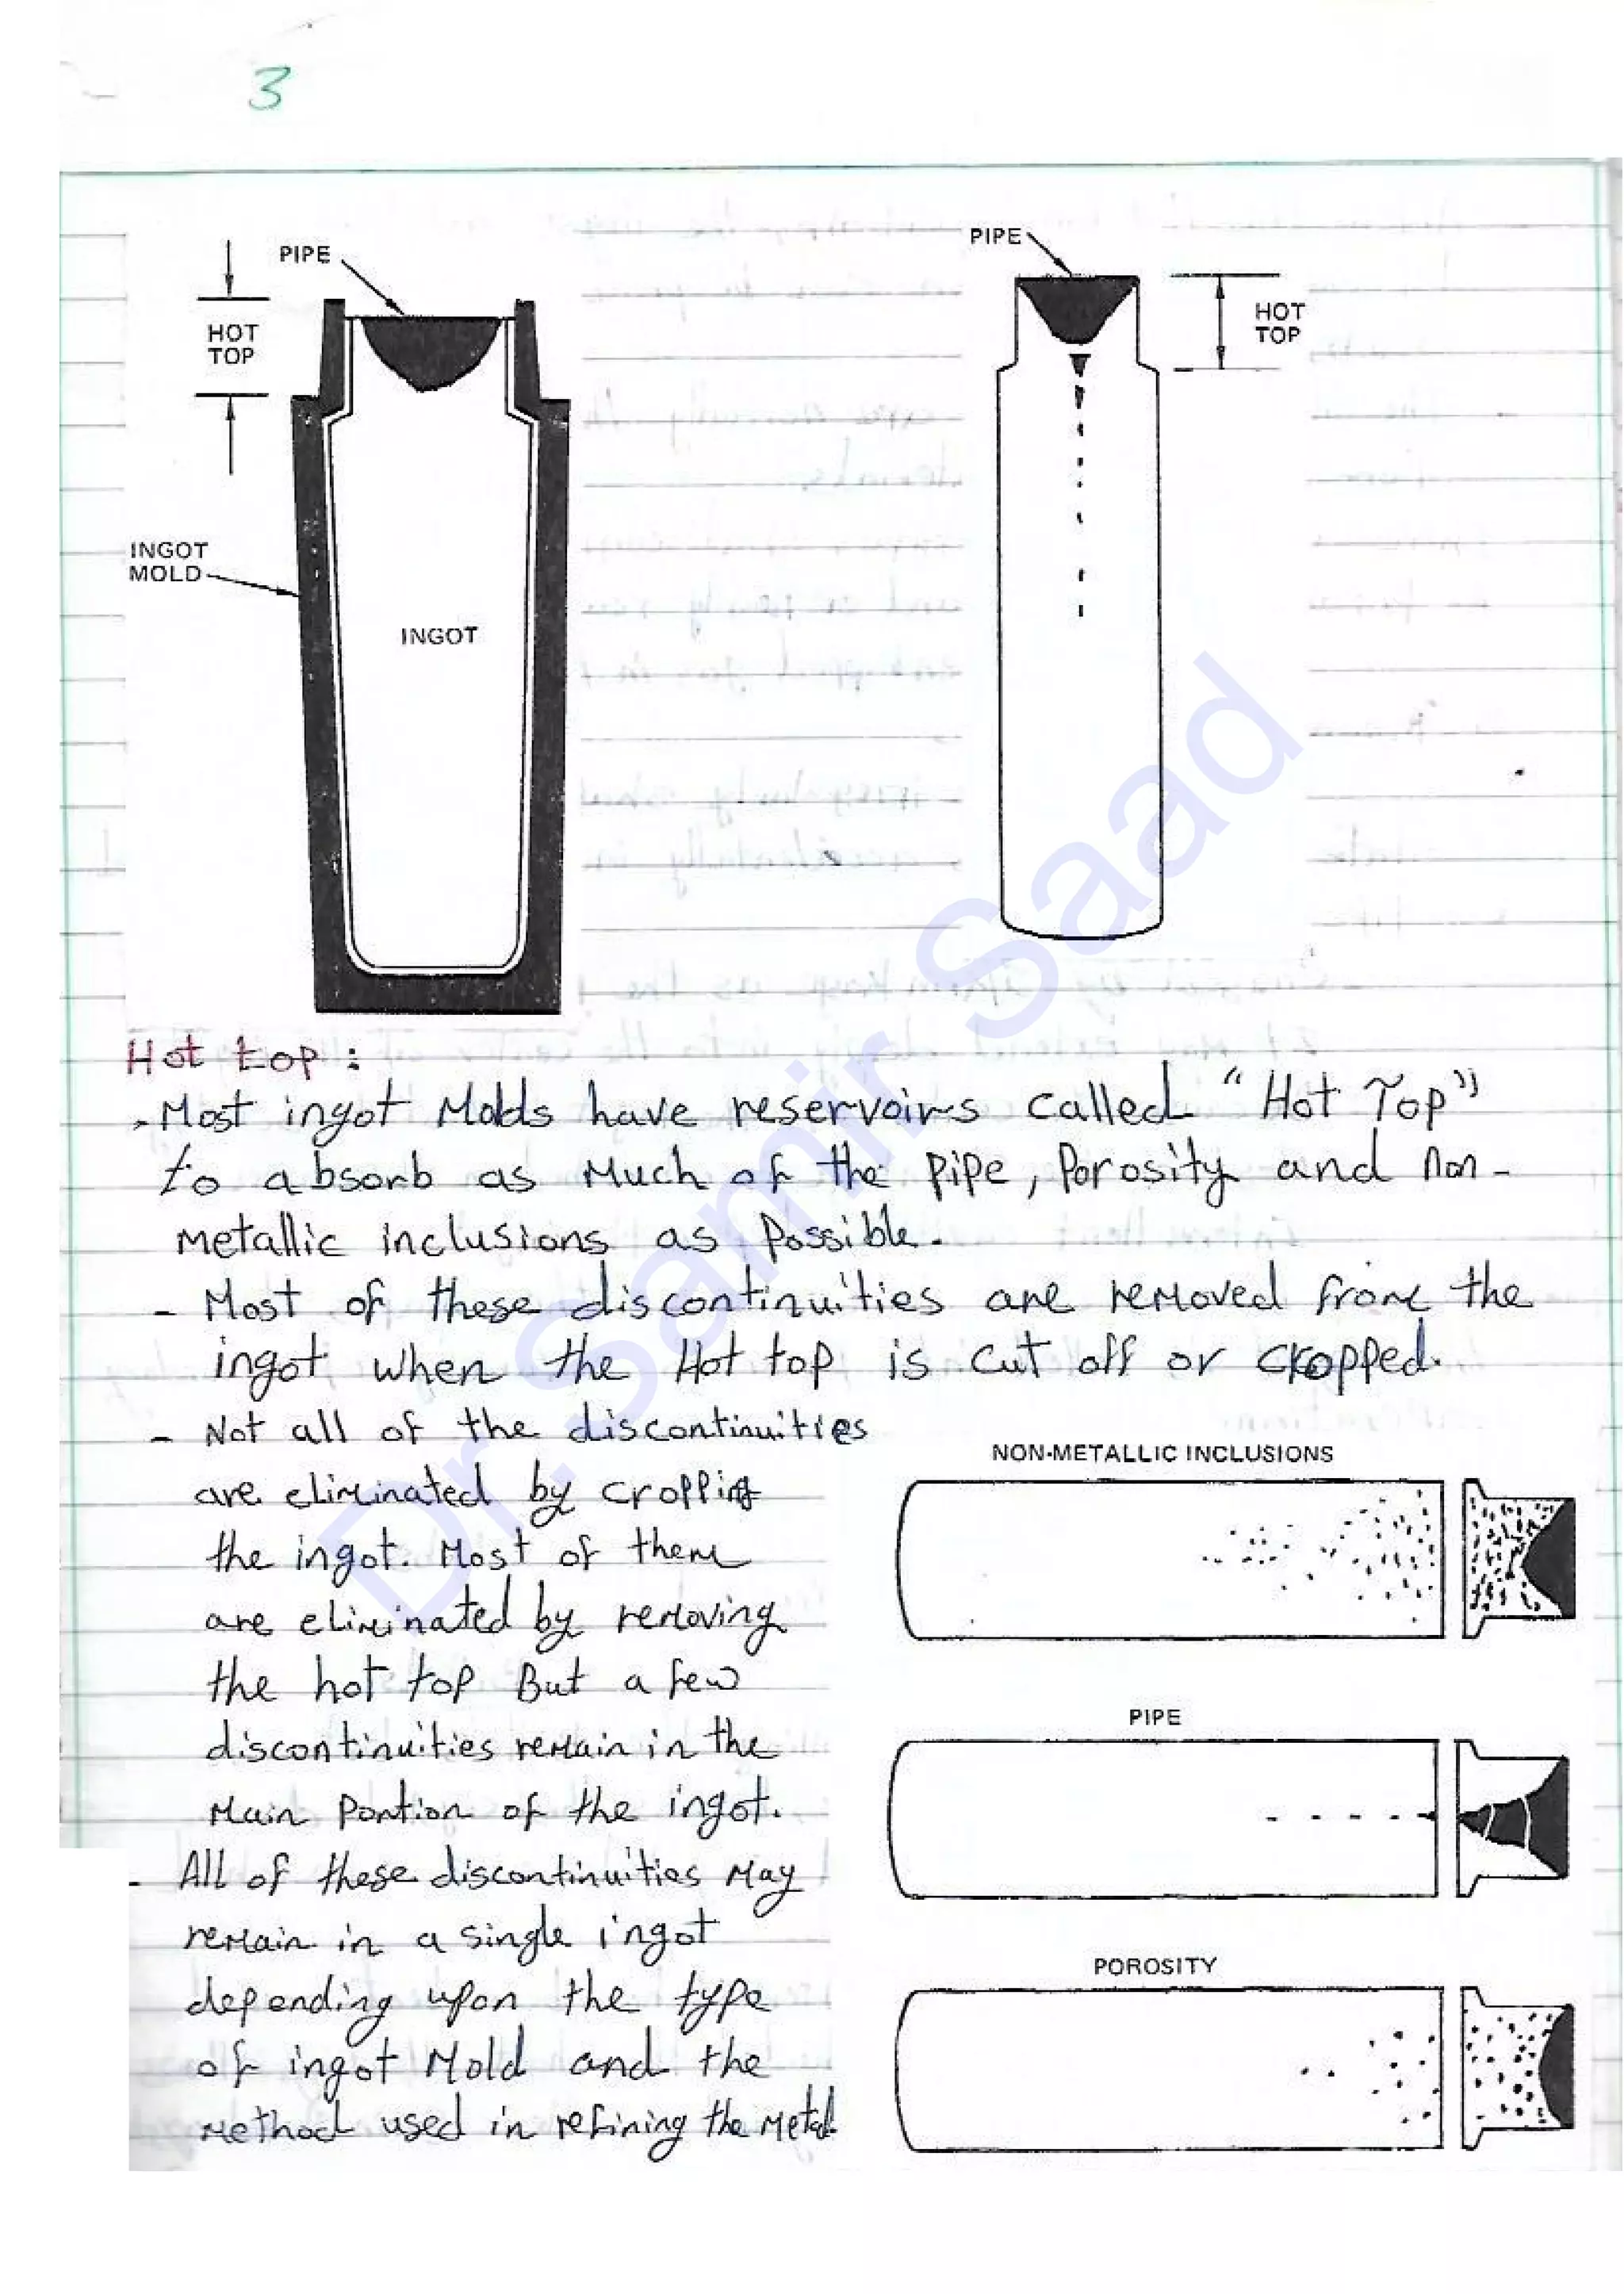 3
PIPE
HOT
TOP
INGOT
MOLD
INGOT
PIPE
HOT
TOP
Hot top :
- Most ingot Molds have reservoirs called "Hot Top"
to absorb as Much of the pipe, Porosity and Non-
metallic inclusions as Possible.
- Most of these discontinuities are removed from the
ingot when the Hot top is cut off or cropped.
- Not all of the discontinuities
are eliminated by cropping
the ingot. Most of them
are eliminated by removing
the hot top But a few
discontinuities remain in the
Main Portion of the ingot.
- All of these discontinuities May
remain in a single ingot
depending upon the type
of ingot Mold and the
Method used in refining the Metal.
NON-METALLIC INCLUSIONS
PIPE
POROSITY
Dr. Samir Saad